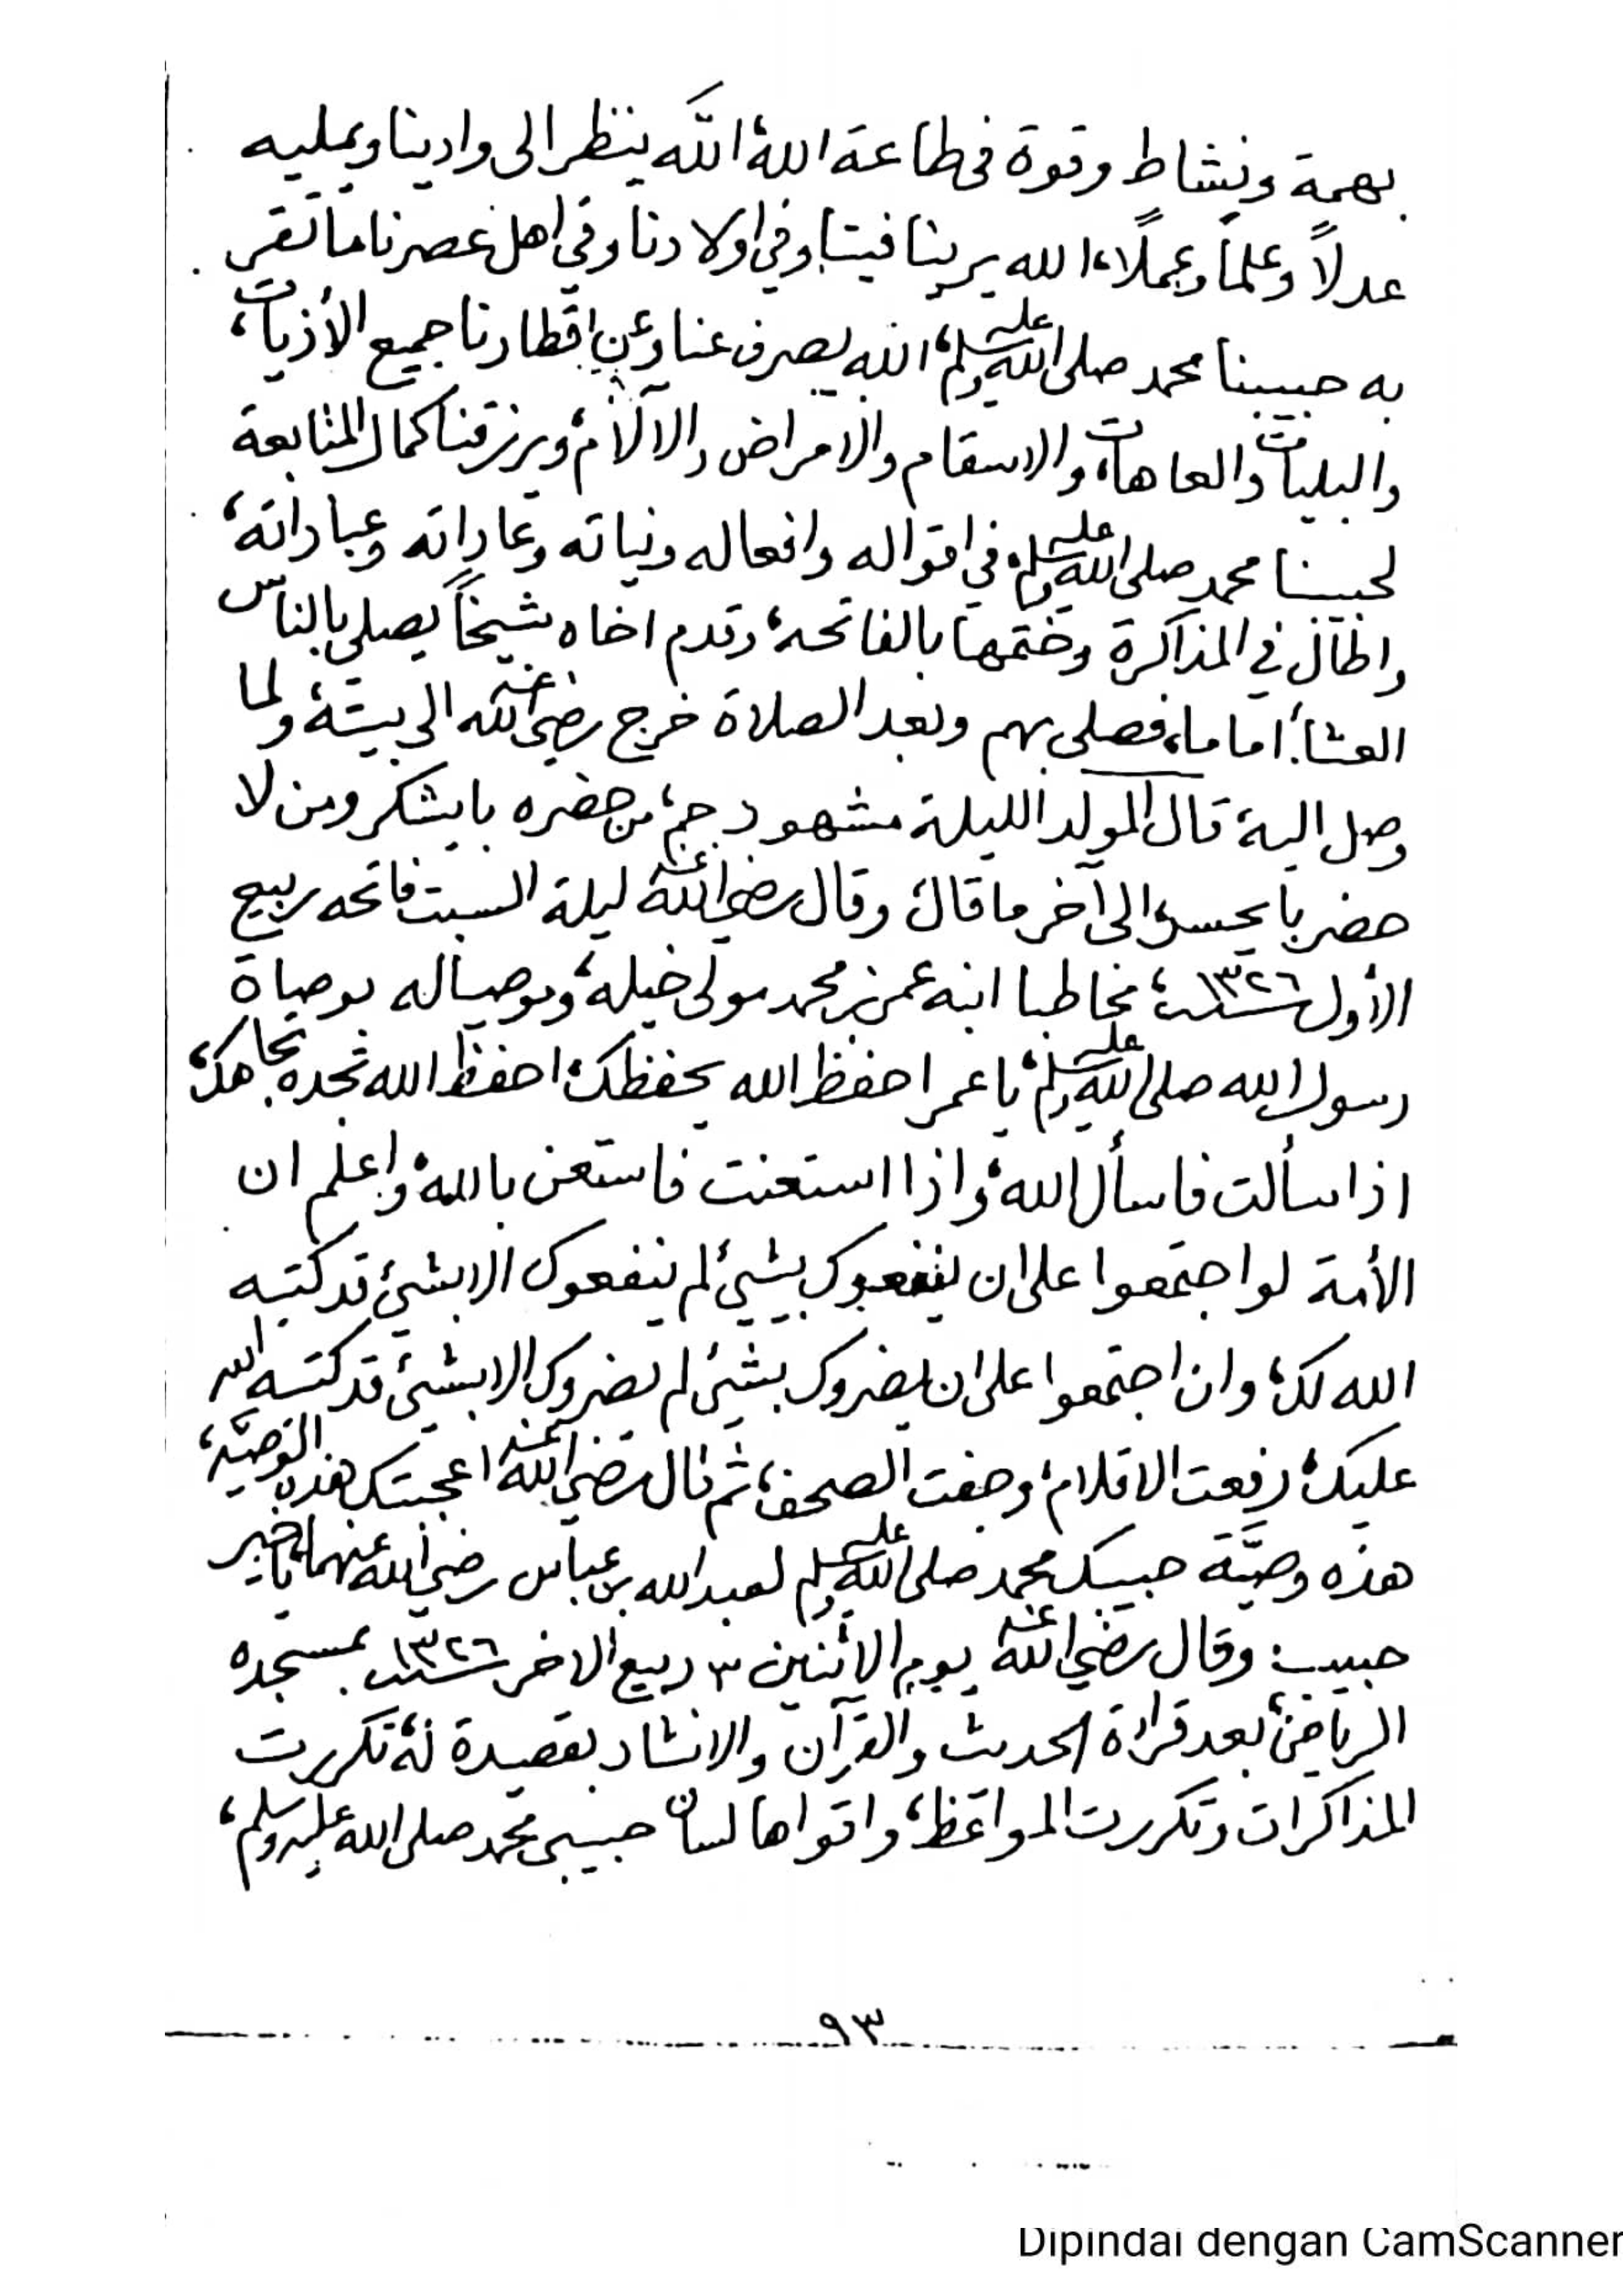 بهمة ونشاط وقوة في طاعة الله، الله ينظر الى وادينا ويمليه
عدلاً وعلماً وعملاً، الله يرينا فينا وفي اولادنا وفي اهل عصرنا ما تقر
به حبيبنا محمد صلى الله عليه وسلم، الله يصرف عنا وعن اقطارنا جميع الأذيات،
والبليات والعاهات، والاسقام والامراض والالآم، ويرزقنا كمال المتابعة
لحبيبنا محمد صلى الله عليه وسلم، في اقواله وافعاله ونياته وعاداته وعباداته،
واطال في المذاكرة وختمها بالفاتحة، وقدم اخاه شيخاً يصلي بالناس
العشاء، اماما، فصلى بهم وبعد الصلاة خرج رضي الله عنه الى بيته، ولما
وصل اليه قال المولد الليلة مشهود جم، من حضره با يشكر ومن لا
حضر با يحسر، الى آخر ما قال، وقال رضي الله عنه ليلة السبت فاتحه ربيع
الأول سنة ١٣٢٦، مخاطبا ابنه عمر بن محمد مولى خيله، وموصيا له بوصاة
رسول الله صلى الله عليه وسلم، يا عمر احفظ الله يحفظك، احفظ الله تجده تجاهك،
اذا سألت فاسأل الله، واذا استعنت فاستعن بالله، واعلم ان
الأمة لو اجتمعوا على ان ينفعوك بشيئ لم ينفعوك الا بشيئ قد كتبه
الله لك، وان اجتمعوا على ان يضروك بشيئ لم يضروك الا بشيئ قد كتبه الله
عليك، رفعت الاقلام، وجفت الصحف، ثم قال رضي الله عنه اعجبتك هذه الوصية،
هذه وصيَّة حبيبك محمد صلى الله عليه وسلم لعبد الله بن عباس رضي الله عنهما، يا خير
حبيب: وقال رضي الله عنه يوم الاثنين ٣ ربيع الاخر سنة ١٣٢٦ بمسجده
الرياض، بعد قراءة الحديث والقرآن والانشاد بقصيدة له، تكررت
المذاكرات وتكررت المواعظ، واقواها لسان حبيبي محمد صلى الله عليه وسلم،
٩٣
Dipindai dengan CamScanner